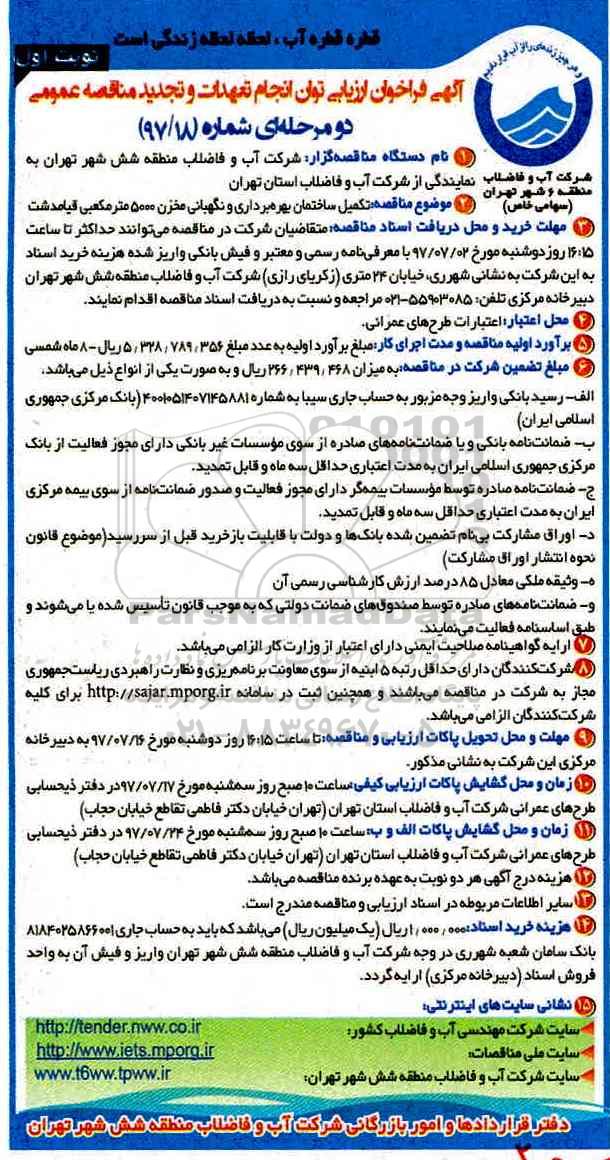 قطره قطره آب، لحظه لحظه زندگی است
نوبت اول
و هر چیز زنده‌ای را از آب قرار دادیم
شرکت آب و فاضلاب
منطقه ۶ شهر تهران
(سهامی خاص)
آگهی فراخوان ارزیابی توان انجام تعهدات و تجدید مناقصه عمومی
دو مرحله‌ای شماره (۹۷/۱۸)
۱ نام دستگاه مناقصه‌گزار: شرکت آب و فاضلاب منطقه شش شهر تهران به
نمایندگی از شرکت آب و فاضلاب استان تهران
۲ موضوع مناقصه: تکمیل ساختمان بهره‌برداری و نگهبانی مخزن ۵۰۰۰ مترمکعبی قیامدشت
۳ مهلت خرید و محل دریافت اسناد مناقصه: متقاضیان شرکت در مناقصه می‌توانند حداکثر تا ساعت
۱۶:۱۵ روز دوشنبه مورخ ۹۷/۰۷/۰۲ با معرفی‌نامه رسمی و معتبر و فیش بانکی واریز شده هزینه خرید اسناد
به این شرکت به نشانی شهرری، خیابان ۲۴ متری (زکریای رازی) شرکت آب و فاضلاب منطقه شش شهر تهران
دبیرخانه مرکزی تلفن: ۵۵۹۰۳۰۸۵-۰۲۱ مراجعه و نسبت به دریافت اسناد مناقصه اقدام نمایند.
۴ محل اعتبار: اعتبارات طرح‌های عمرانی.
۵ برآورد اولیه مناقصه و مدت اجرای کار: مبلغ برآورد اولیه به عدد مبلغ ۵,۳۲۸,۷۸۹,۳۵۶ ریال - ۸ ماه شمسی
۶ مبلغ تضمین شرکت در مناقصه: به میزان ۲۶۶,۴۳۹,۴۶۸ ریال و به صورت یکی از انواع ذیل می‌باشد.
الف- رسید بانکی واریز وجه مزبور به حساب جاری سیبا به شماره ۴۰۰۱۰۵۱۴۰۷۱۴۵۸۸۱ (بانک مرکزی جمهوری
اسلامی ایران)
ب- ضمانت‌نامه بانکی و یا ضمانت‌نامه‌های صادره از سوی مؤسسات غیر بانکی دارای مجوز فعالیت از بانک
مرکزی جمهوری اسلامی ایران به مدت اعتباری حداقل سه ماه و قابل تمدید.
ج- ضمانت‌نامه صادره توسط مؤسسات بیمه‌گر دارای مجوز فعالیت و صدور ضمانت‌نامه از سوی بیمه مرکزی
ایران به مدت اعتباری حداقل سه ماه و قابل تمدید.
د- اوراق مشارکت بی‌نام تضمین شده بانک‌ها و دولت با قابلیت بازخرید قبل از سررسید (موضوع قانون
نحوه انتشار اوراق مشارکت)
ه- وثیقه ملکی معادل ۸۵ درصد ارزش کارشناسی رسمی آن
و- ضمانت‌نامه‌های صادره توسط صندوق‌های ضمانت دولتی که به موجب قانون تأسیس شده یا می‌شوند و
طبق اساسنامه فعالیت می‌نمایند.
۷ ارایه گواهینامه صلاحیت ایمنی دارای اعتبار از وزارت کار الزامی می‌باشد.
۸ شرکت‌کنندگان دارای حداقل رتبه ۵ ابنیه از سوی معاونت برنامه‌ریزی و نظارت راهبردی ریاست‌جمهوری
مجاز به شرکت در مناقصه می‌باشند و همچنین ثبت در سامانه http://sajar.mporg.ir برای کلیه
شرکت‌کنندگان الزامی می‌باشد.
۹ مهلت و محل تحویل پاکات ارزیابی و مناقصه: تا ساعت ۱۶:۱۵ روز دوشنبه مورخ ۹۷/۰۷/۱۶ به دبیرخانه
مرکزی این شرکت به نشانی مذکور.
۱۰ زمان و محل گشایش پاکات ارزیابی کیفی: ساعت ۱۰ صبح روز سه‌شنبه مورخ ۹۷/۰۷/۱۷ در دفتر ذیحسابی
طرح‌های عمرانی شرکت آب و فاضلاب استان تهران (تهران خیابان دکتر فاطمی تقاطع خیابان حجاب)
۱۱ زمان و محل گشایش پاکات الف و ب: ساعت ۱۰ صبح روز سه‌شنبه مورخ ۹۷/۰۷/۲۴ در دفتر ذیحسابی
طرح‌های عمرانی شرکت آب و فاضلاب استان تهران (تهران خیابان دکتر فاطمی تقاطع خیابان حجاب)
۱۲ هزینه درج آگهی هر دو نوبت به عهده برنده مناقصه می‌باشد.
۱۳ سایر اطلاعات مربوطه در اسناد ارزیابی و مناقصه مندرج است.
۱۴ هزینه خرید اسناد: ۱,۰۰۰,۰۰۰ ریال (یک میلیون ریال) می‌باشد که باید به حساب جاری ۸۱۸۴۰۲۵۸۶۶۰۰۱
بانک سامان شعبه شهرری در وجه شرکت آب و فاضلاب منطقه شش شهر تهران واریز و فیش آن به واحد
فروش اسناد (دبیرخانه مرکزی) ارایه گردد.
۱۵ نشانی سایت‌های اینترنتی:
سایت شرکت مهندسی آب و فاضلاب کشور: http://tender.nww.co.ir
سایت ملی مناقصات: http://www.iets.mporg.ir
سایت شرکت آب و فاضلاب منطقه شش شهر تهران: www.t6ww.tpww.ir
دفتر قراردادها و امور بازرگانی شرکت آب و فاضلاب منطقه شش شهر تهران
ParsNamadData
۰۲۱-۸۸۳۴۹۶۷۰-۵